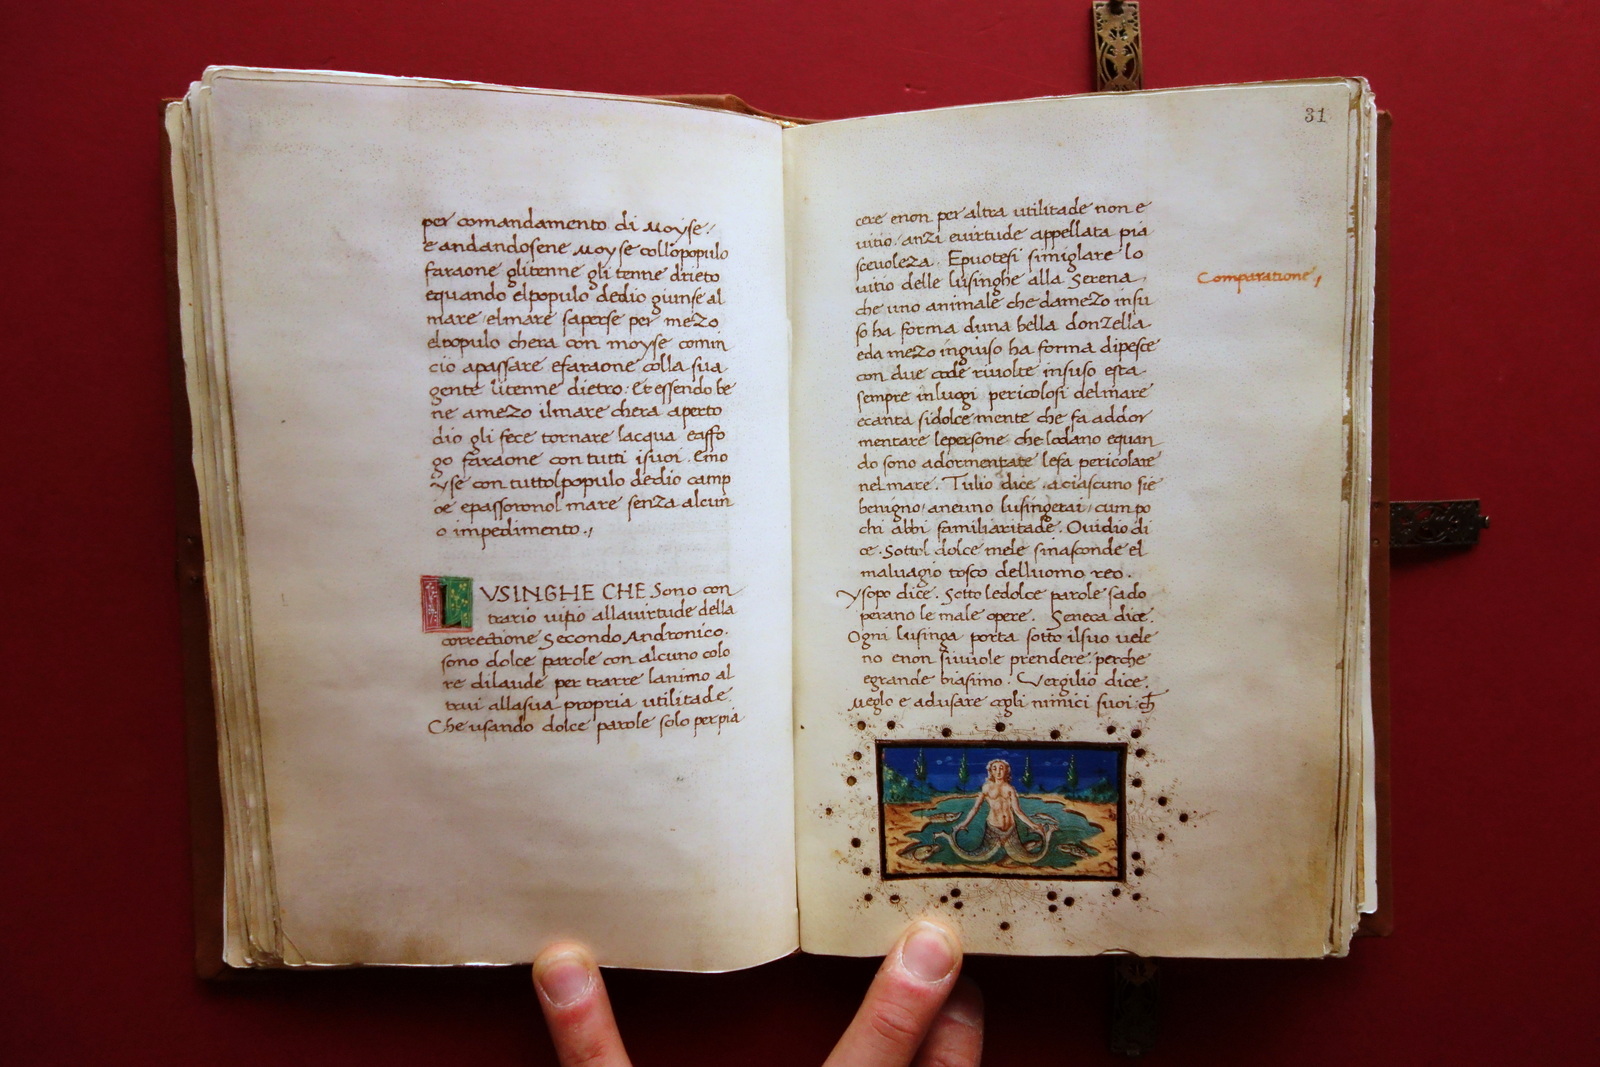 per comandamento di Moyse.
e andandosene Moyse collopopulo
faraone glitenne gli tenne drieto
equando elpopulo dedio giunse al
mare elmare saperse per mezo
elpopulo chera con moyse comin
cio apassare efaraone colla sua
gente litenne dietro. Et essendo be
ne amezo ilmare chera aperto
dio gli fece tornare lacqua eaffo
go faraone con tutti isuoi. Emo
yse con tuttolpopulo dedio camp
oe epassoronol mare senza alcun
o impedimento.,
LVSINGHE CHE Sono con
trario uitio allauirtude della
correctione Secondo Andronico.
sono dolce parole con alcuno colo
re dilaude per trarre lanimo al
trui allasua propria utilitade.
Che usando dolce parole solo per pia
31
cere enon per altra utilitade non e
uitio. anzi euirtude appellata pia
sceuoleza. Epuotesi simiglare lo
uitio delle lusinghe alla Serena
Comparatione,
che uno animale che damezo insu
so ha forma duna bella donzella
eda mezo ingiuso ha forma dipesce
con due code riuolte insuso esta
sempre inluogi pericolosi delmare
ecanta sidolce mente che fa addor
mentare lepersone che lodano equan
do sono adormentate lefa pericolare
nelmare. Tulio dice. aciascuno sie
benigno, aneuno lusingerai, cum po
chi abbi familiaritade. Ouidio di
ce. Sottol dolce mele sinasconde el
maluagio tosco delluomo reo.
ysopo dice. Sotto ledolce parole sado
perano le male opere. Seneca dice.
Ogni lusinga porta sotto ilsuo uele
no enon siuuole prendere perche
egrande biasimo. Vergilio dice.
Meglo e adusare cogli nimici suoi ch